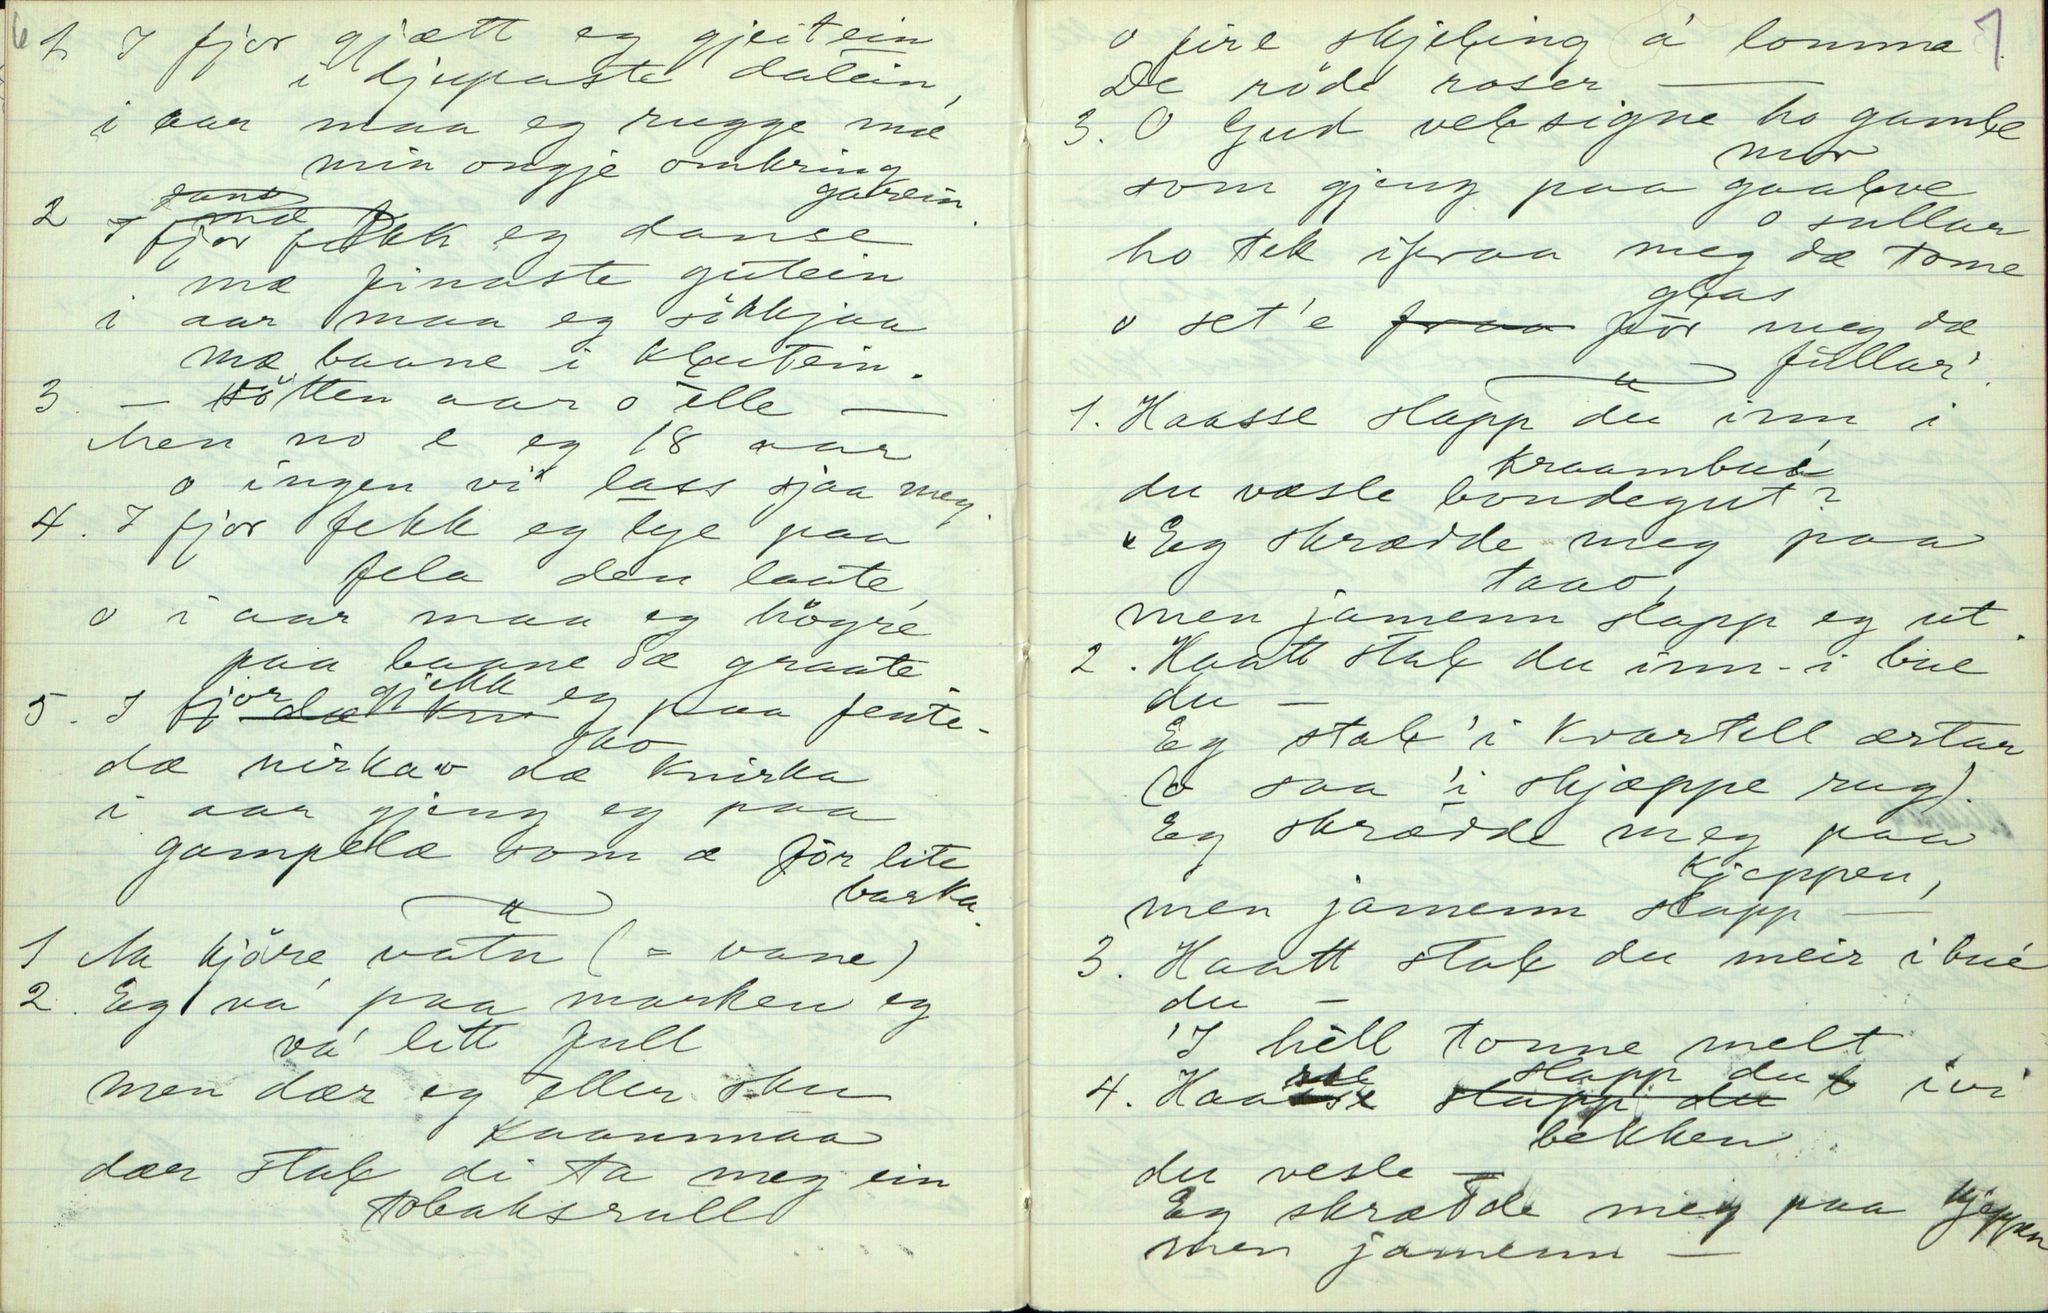 6
1 I fjor gjætt eg gjeitein
i djupaste dalein,
i aar maa eg rugge mæ
min ongje omkring
garein.
2 I fjor fekk eg danse
mæ finaste gutein
i aar maa eg sökkjaa
mæ baane i kleutein.
3. — søtten aar o ille —
Men no e eg 18 aar
o ingen vi lass sjaa meg.
4. I fjor fekk eg lye paa
fela den laate,
o i aar maa eg högre
paa baane dæ graate
5. I fjor gjekk eg paa fente-
sko
dæ nirka o dæ knirka
i aar gjeng eg paa
gampelæ som æ för lite
barka.
1 Aa kjöre vatn (= vane)
2. Eg va' paa marken eg
va' litt full
men dær eg eller sku
kaanmaa
dær stal di ta meg ein
tobaksrull
7
o fire skjeling á lomma.
De röde roser —
3. O Gud velsigne ho gamle
mor
som gjeng paa gaalve
o sullar
ho tek ifraa meg dæ tome
glas
o set'e för meg dæ
fullar'.
1. Haasse slapp du inn i
kraambué
du væsle bondegut?
"Eg skrædde meg paa
taao,
men jamenn slapp eg ut.
2. Haatt stal du inn i bue
du —
Eg stal 'i kvartell ærtar
(o saa 'i skjæppe rug).
Eg skrædde meg paa
kjeppen,
men jamenn slapp —
3. Haatt stal du meir i bué
du —
'I hell tonne melt
4. Haasse slapp du ivi
bekken
du vesle —
Eg skrædde meg paa kjeppen
men jamenn —